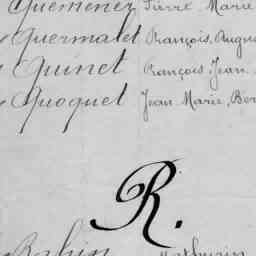 Quemener Pierre Marie
Quermalet François, Augus
Quinet François, Jean
Quoquet Jean Marie, Ber
R.
Rabin Mathurin